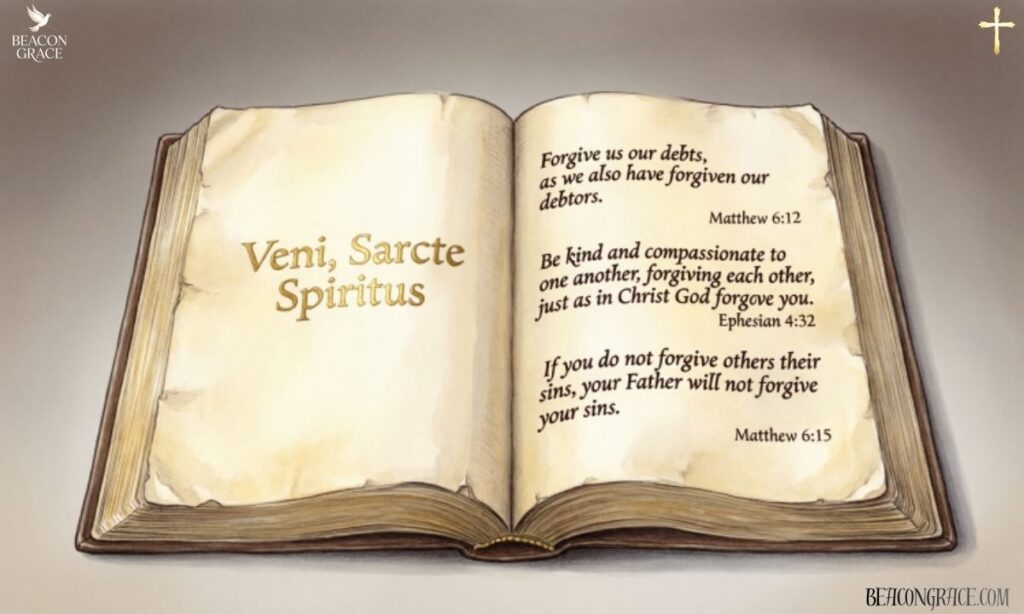 BEACON
GRACE
Veni, Sarcte
Spiritus
Forgive us our debts,
as we also have forgiven our
debtors.
Matthew 6:12
Be kind and compassionate to
one another, forgiving each other,
just as in Christ God forgave you.
Ephesian 4:32
If you do not forgive others their
sins, your Father will not forgive
your sins.
Matthew 6:15
BEACONGRACE.COM